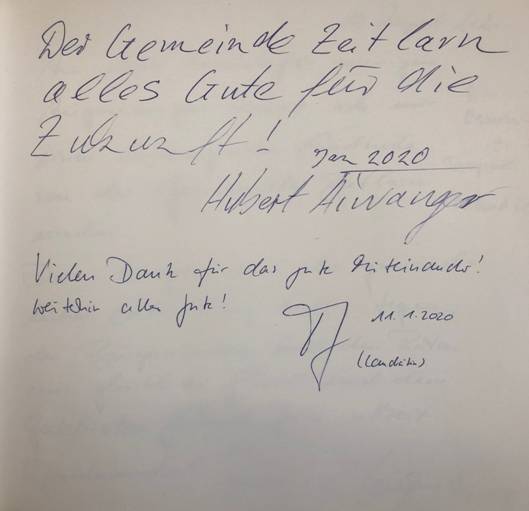 Der Gemeinde Zeitlarn
alles Gute für die
Zukunft!
Jan 2020
Hubert Aiwanger
Vielen Dank für das gute Miteinander!
Weiterhin alles gute!
11.1.2020
(Landrätin)